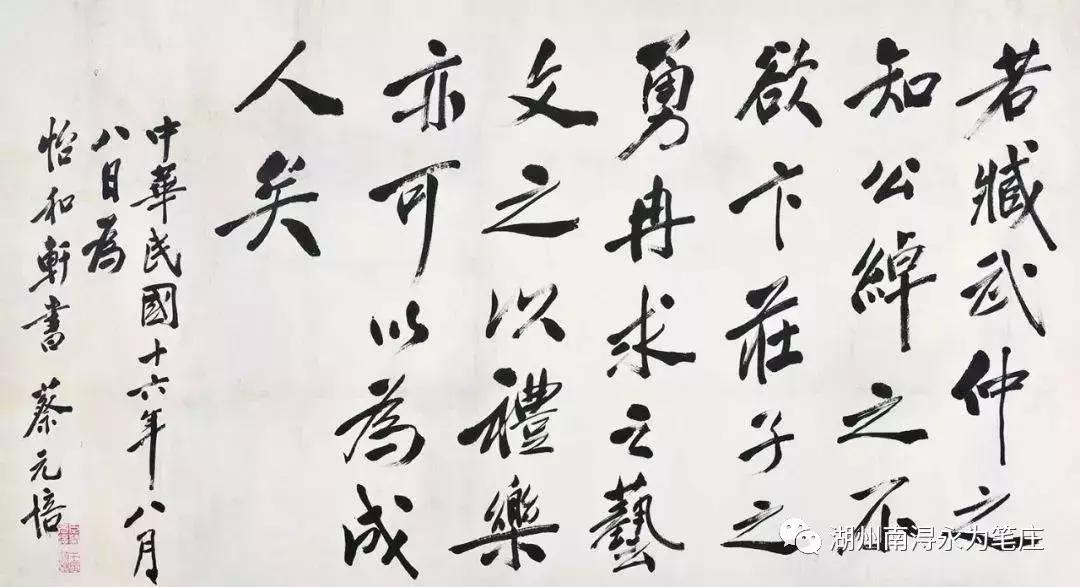 若臧武仲之
知公綽之不
欲卞莊子之
勇冉求之藝
文之以禮樂
亦可以為成
人矣
中華民國十六年八月
八日為
怡和軒書 蔡元培
湖州南浔永为笔庄